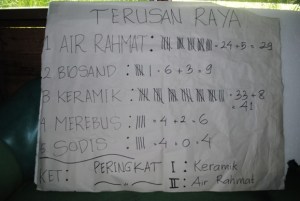 TERUSAN RAYA
1 AIR RAHMAT : 24 + 5 = 29
2 BIOSAND : 6 + 3 = 9
3 KERAMIK : 33 + 8
= 41
4 MEREBUS : 4 + 2 = 6
5 SODIS : 4 + 0 = 4
KET: PERINGKAT I : Keramik
II : Air Rahmat